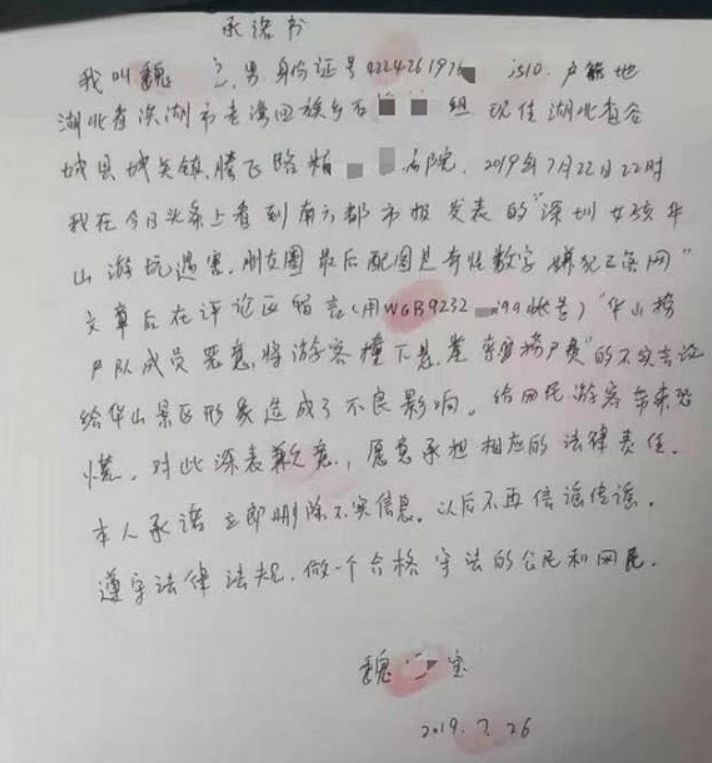 承诺书
我叫魏 ,男,身份证号4224261976 1510.户籍地
湖北省洪湖市老湾回族乡 组 现住湖北省谷
城县城关镇腾飞路 院.2019年7月22日22时
我在今日头条上看到南方都市报发表的"深圳女孩华
山游玩遇害,朋友圈最后配图是奇怪数字 嫌犯已落网"
文章后在评论区留言(用WGB9232 199账号)"华山搜
尸队成员恶意,将游客撞下悬崖索要捞尸费"的不实言论
给华山景区形象造成了不良影响。给网民游客带来恐
慌。对此深表歉意,愿意承担相应的法律责任.
本人承诺立即删除不实信息。以后不再信谣传谣.
遵守法律法规.做一个合格守法的公民和网民.
魏 宝
2019.7.26